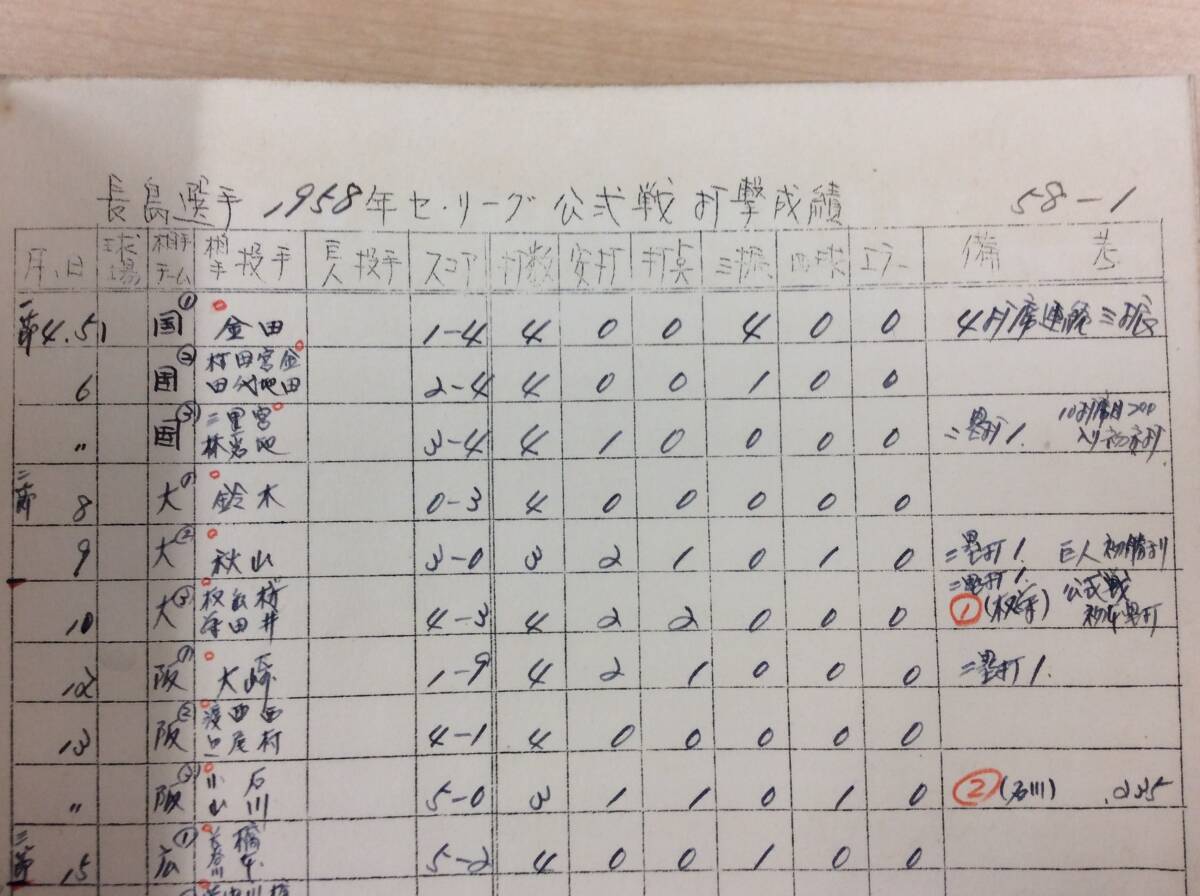 長島選手 1958年セ・リーグ公式戦打撃成績 58-1
月.日 球場 相手チーム 相手投手 巨人投手 スコア 打数 安打 打点 三振 四球 エラー 備考
一節 4.5 国① 金田 1-4 4 0 0 4 0 0 4打席連続三振
6 国② 村田 田代 宮地 金田 2-4 4 0 0 1 0 0
〃 国③ 三林 宮地 3-4 4 1 0 0 0 0 二塁打1.
二節 8 大① 鈴木 0-3 4 0 0 0 0 0
9 大② 秋山 3-0 3 2 1 0 1 0 二塁打1. 巨人初勝利
10 大③ 権藤 村井 4-3 4 2 2 0 0 0 二塁打1. ①(权藤) 公式戦初本塁打
12 阪① 大崎 1-9 4 2 1 0 0 0 二塁打1.
13 阪② 西尾 西村 4-1 4 0 0 0 0 0
〃 阪③ 小山 石川 5-0 3 1 1 0 1 0 ②(石川) .235
三節 15 広① 長谷川 橋本 5-2 4 0 0 1 0 0